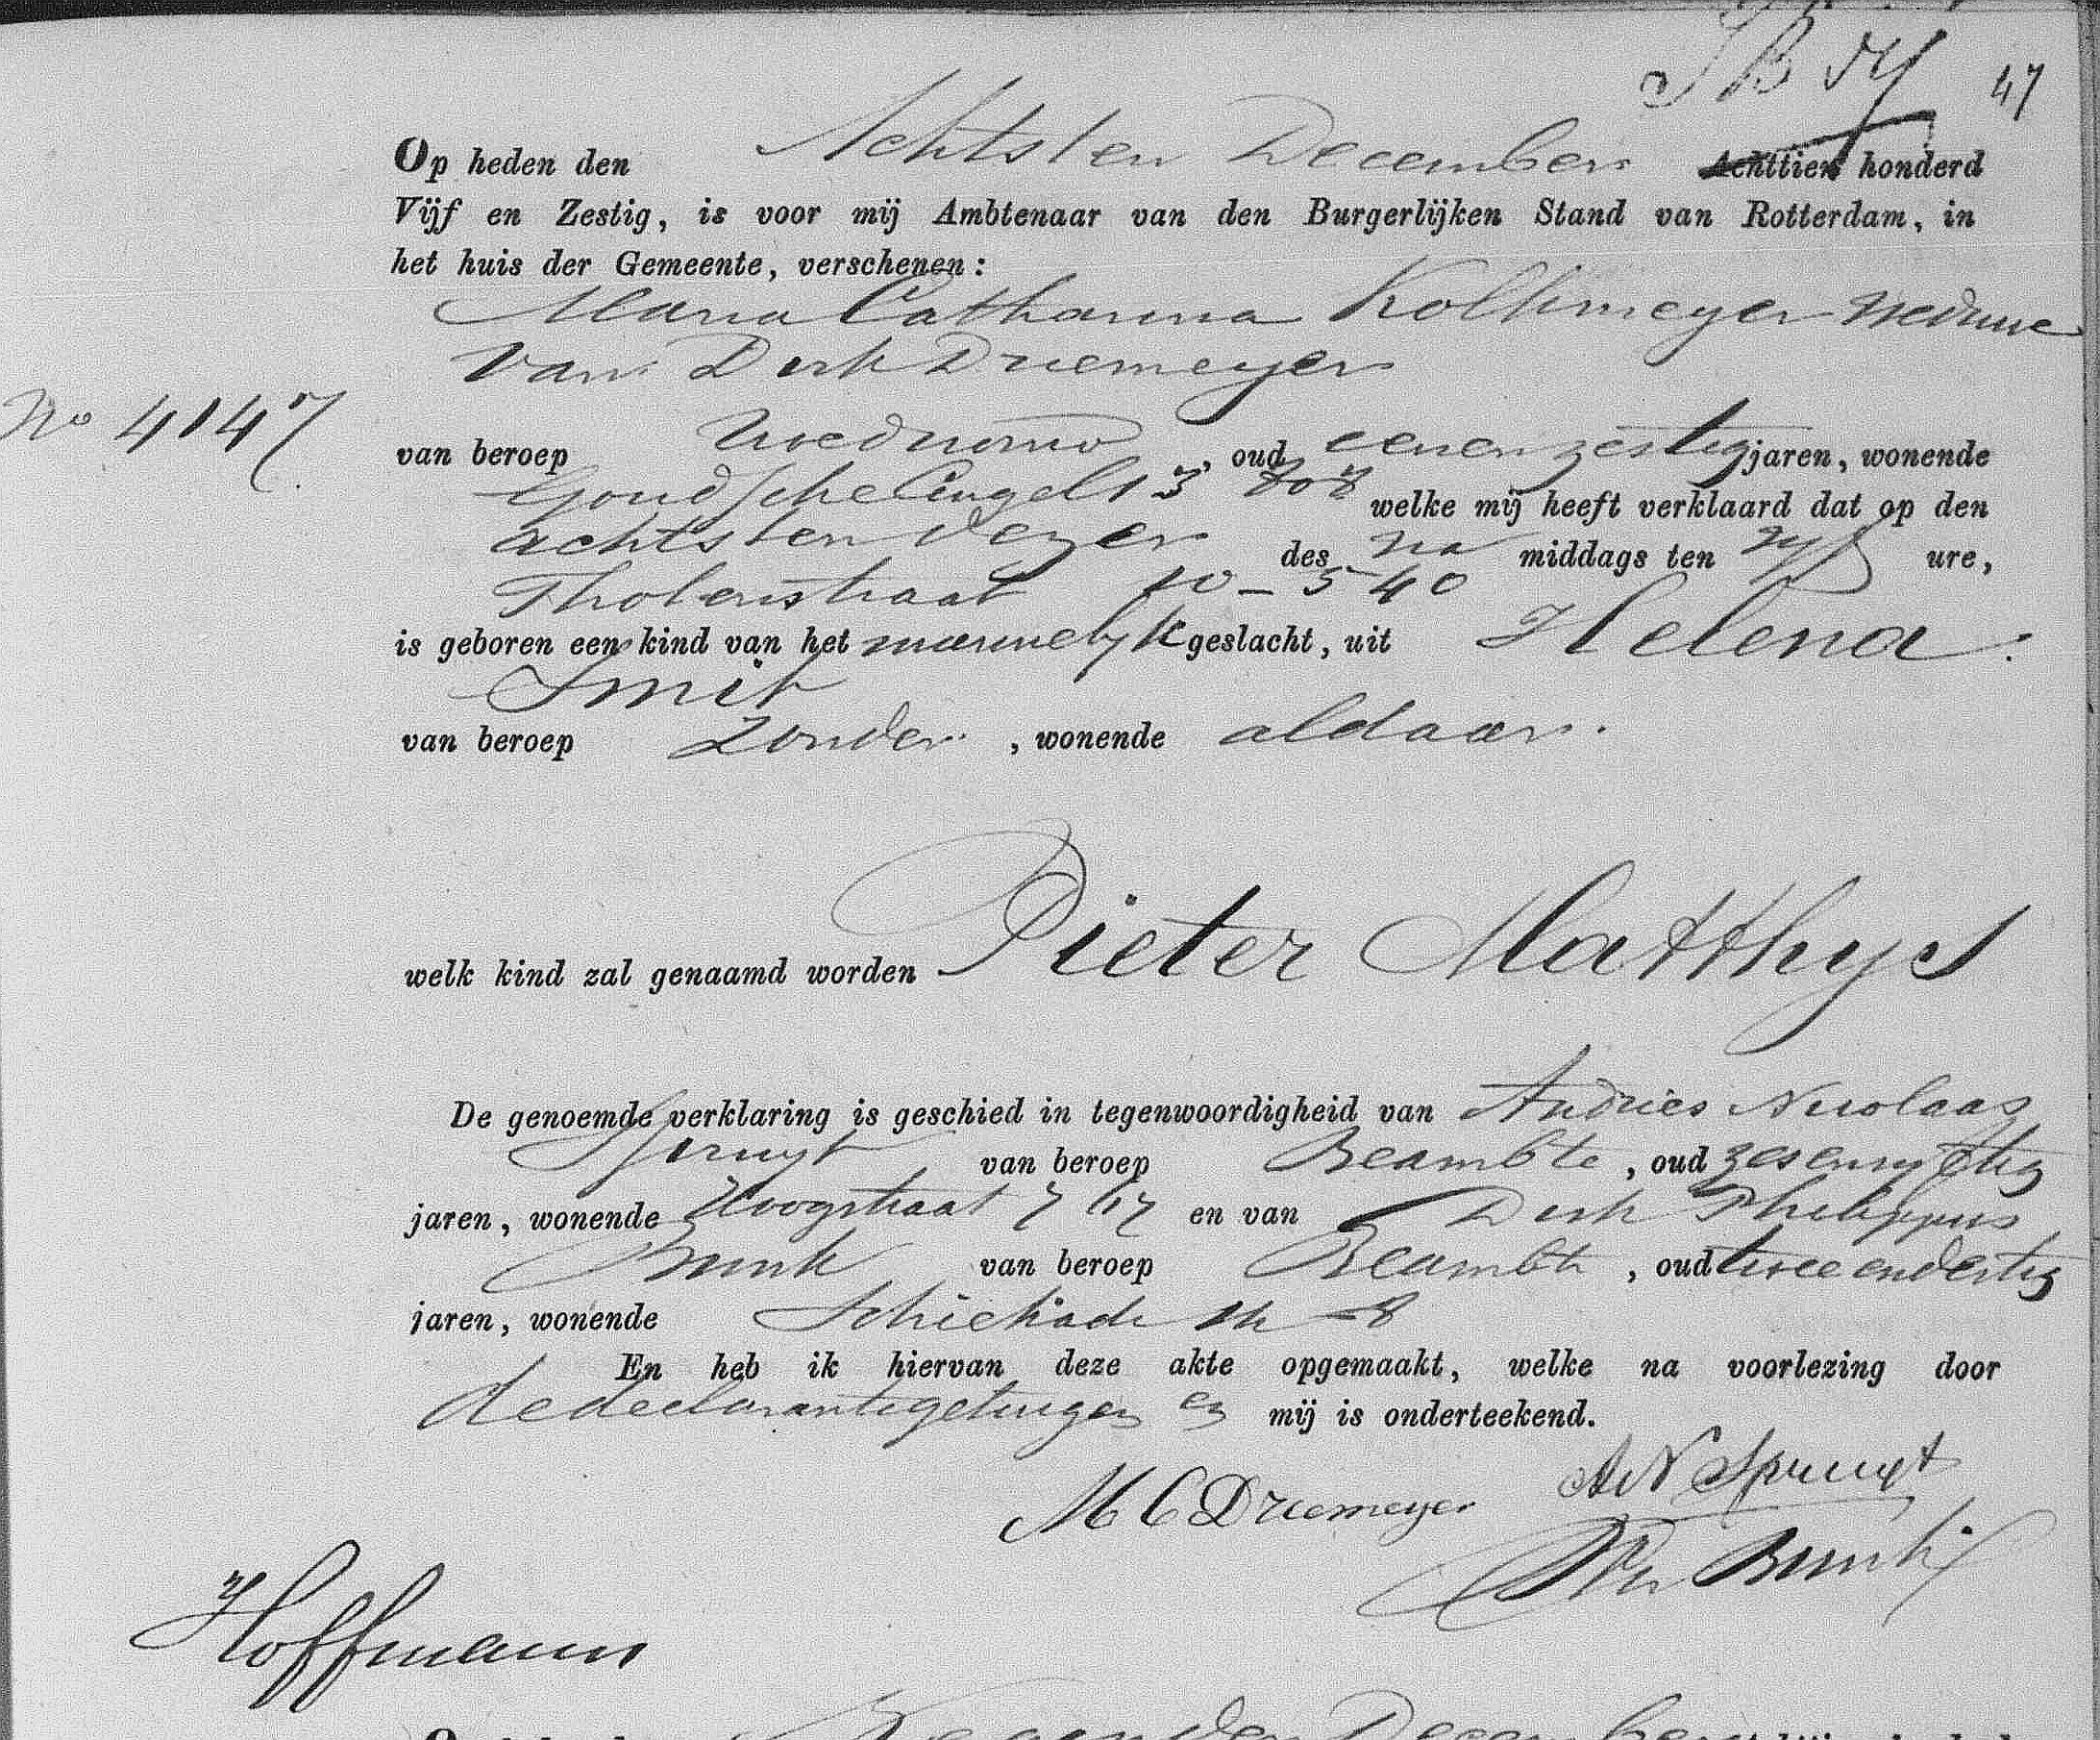 47
Op heden den Achtsten December Achttien honderd
Vijf en Zestig, is voor mij Ambtenaar van den Burgerlijken Stand van Rotterdam, in
het huis der Gemeente, verschenen:
Maria Catharina Kolkmeyer weduwe
van Dirk Driemeyer
No 4147
van beroep Vroedvrouw, oud eenenzestig jaren, wonende
Goudsche Cingel 13 welke mij heeft verklaard dat op den
achtsten dezer des na middags ten vyf ure,
Tholenstraat 10-540
is geboren een kind van het mannelyk geslacht, uit Helena
Smit
van beroep zonder, wonende aldaar.
welk kind zal genaamd worden Pieter Matthys
De genoemde verklaring is geschied in tegenwoordigheid van Andries Nicolaas
Spruyt van beroep Beambte, oud zesenvyftig
jaren, wonende Hoogstraat 7 en van Dirk Philippus
Bunk van beroep Beambte, oud tweeendertig
jaren, wonende Schiekade
En heb ik hiervan deze akte opgemaakt, welke na voorlezing door
de declarante getuigen en mij is onderteekend.
M C Driemeyer AN Spruyt
Bunk
Hoffmann
December